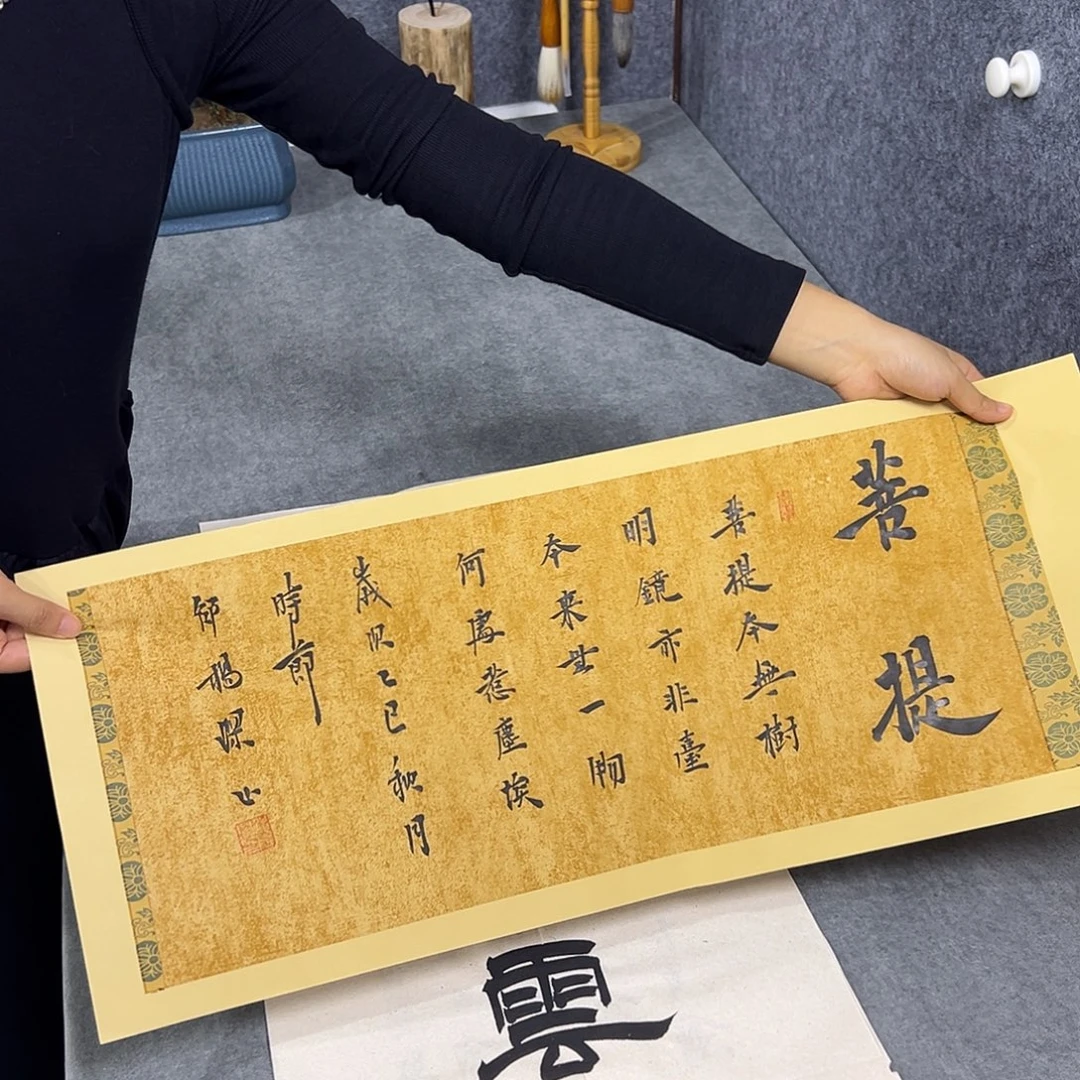 菩提
菩提本無樹
明鏡亦非臺
本来無一物
何處惹塵埃
歲次乙巳秋月
時節
雲